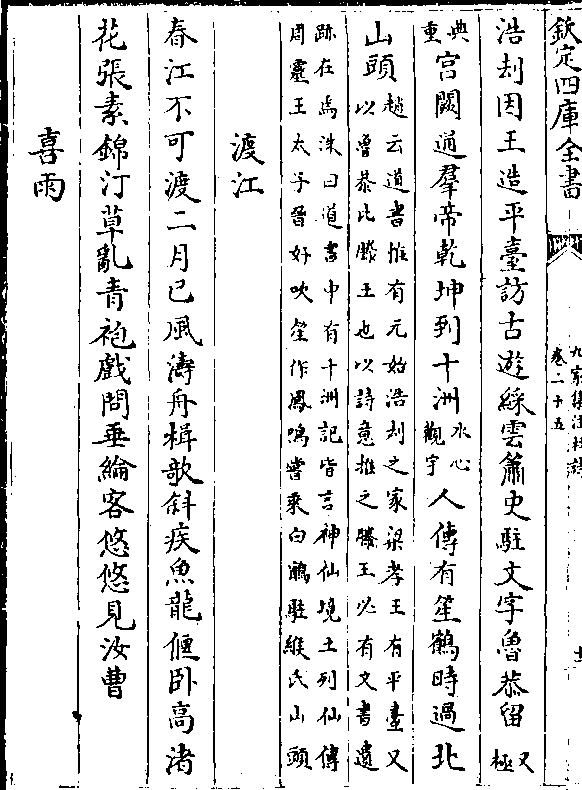 欽定四庫全書
九家集注杜詩
卷二十五
浩刦因王造平臺訪古遊綵雲簫史駐文字魯恭留又極
典重宫闕通羣帝乾坤到十洲水心觀宇人傳有笙鶴時過北
山頭趙云道書惟有元始浩刦之家梁孝王有平臺又
以魯恭比滕王也以詩意推之滕王必有文書遺
跡在焉洙曰道書中有十洲記皆言神仙境土列仙傳
周靈王太子晉好吹笙作鳳鳴嘗乘白鶴駐緱氏山頭
渡江
春江不可渡二月已風濤舟楫欹斜疾魚龍偃卧高渚
花張素錦汀草亂青袍戲問垂綸客悠悠見汝曹
喜雨